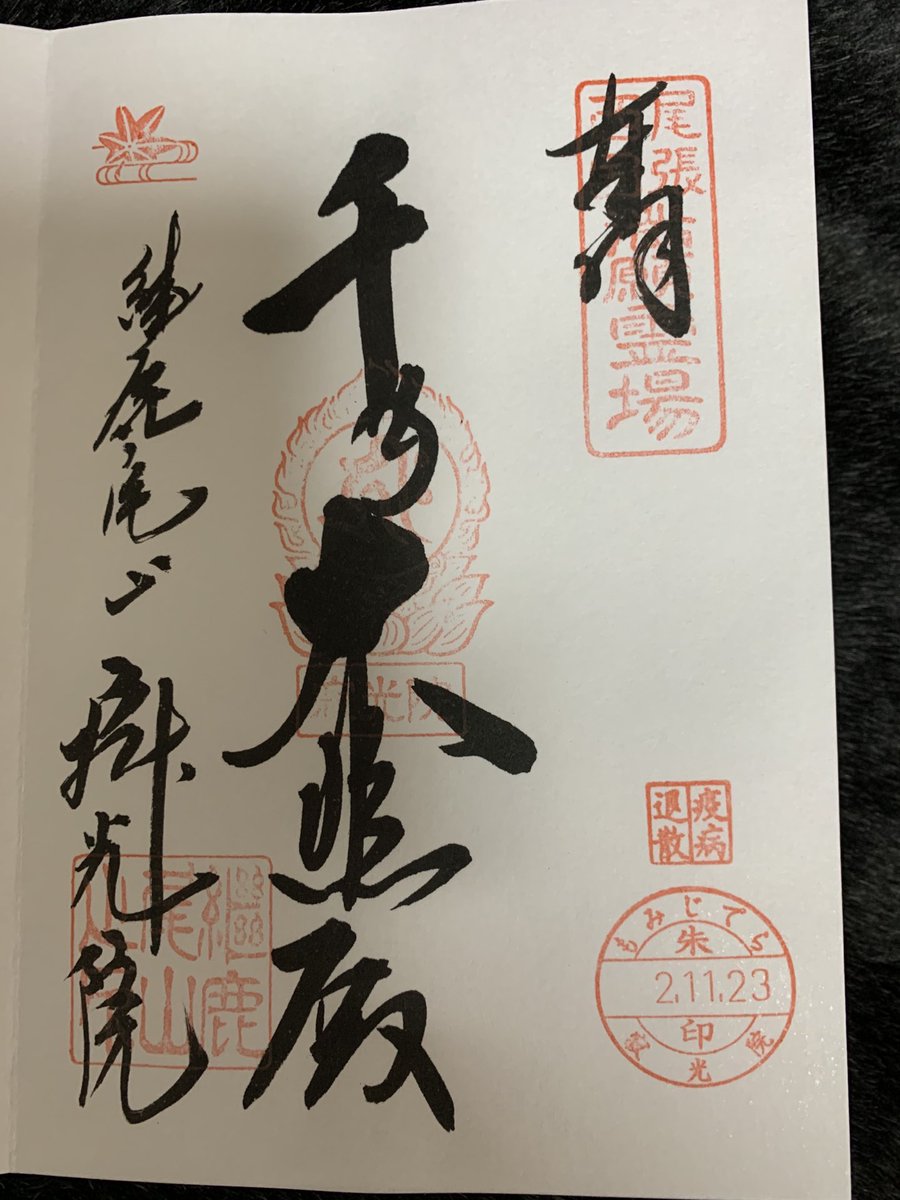 奉拝
尾張
西国
願霊場
千手大悲殿
寂光院
継鹿尾山 寂光院
繼鹿
尾山
疫病
退散
もみじでら
朱
2.11.23
印
寂光院